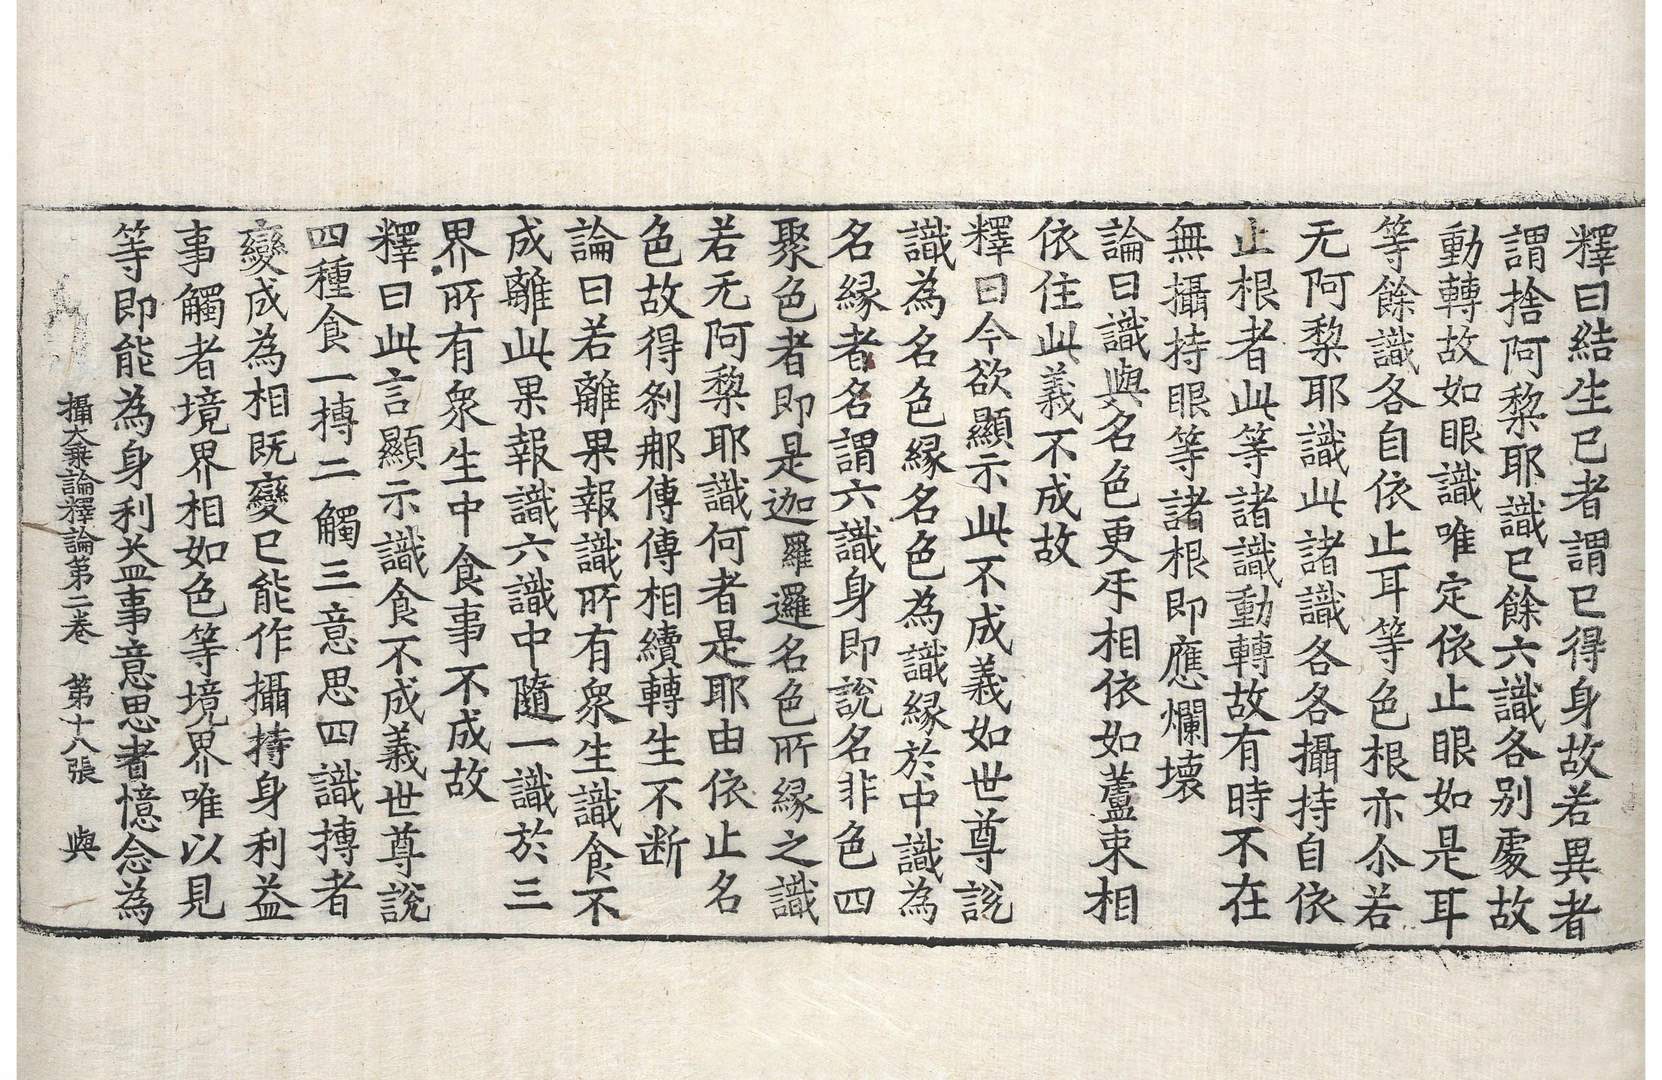 釋曰結生已者謂已得身故若異者
謂捨阿黎耶識已餘六識各別處故
動轉故如眼識唯定依止眼如是耳
等餘識各自依止耳等色根亦尒若
无阿黎耶識此諸識各各攝持自依
止根者此等諸識動轉故有時不在
無攝持眼等諸根即應爛壞
論曰識與名色更㸦相依如蘆束相
依住此義不成故
釋曰今欲顯示此不成義如世尊說
識為名色緣名色為識緣於中識為
名緣者名謂六識身即說名非色四
聚色者即是迦羅邏名色所緣之識
若无阿黎耶識何者是耶由依止名
色故得剎那傳傳相續轉生不断
論曰若離果報識所有眾生識食不
成離此果報識六識中隨一識於三
界所有眾生中食事不成故
釋曰此言顯示識食不成義世尊說
四種食一摶二觸三意思四識摶者
變成為相既變已能作攝持身利益
事觸者境界相如色等境界唯以見
等即能為身利益事意思者憶念為
攝大乘論釋論第二卷 第十八張 與